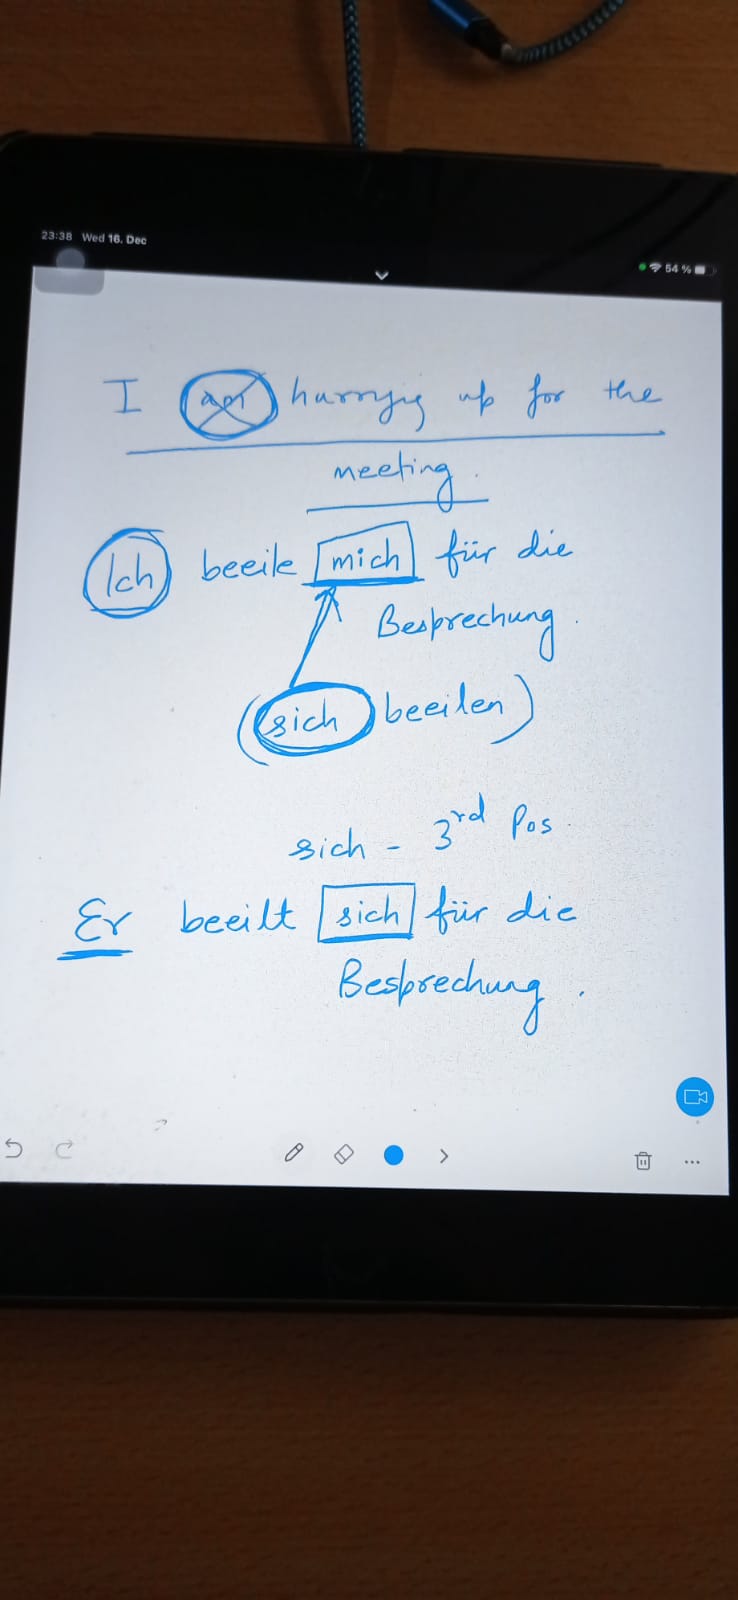 23:38 Wed 16. Dec
54 %
I am hurrying up for the
meeting.
Ich beeile mich für die
Besprechung.
(sich beeilen)
sich - 3rd Pos.
Er beeilt sich für die
Besprechung.